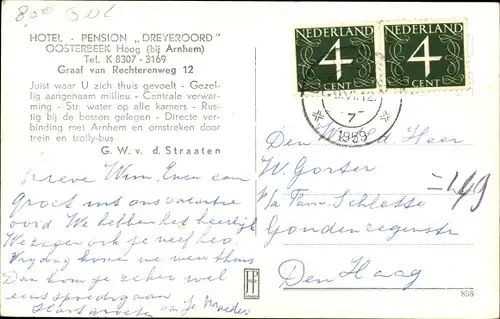 8,00 GUL
HOTEL - PENSION „DREYEROORD"
OOSTERBEEK Hoog (bij Arnhem)
Tel. K 8307 - 3169
Graaf van Rechterenweg 12
Juist waar U zich thuis gevoelt - Gezel-
lig aangenaam milieu - Centrale verwar-
ming - Str. water op alle kamers - Rus-
tig bij de bossen gelegen - Directe ver-
binding met Arnhem en omstreken door
trein en trolly-bus
G. W. v. d. Straaten
NEDERLAND NEDERLAND
4 4
CENT CENT
7
1959
Lieve Wim, Even een
groet uit ons vacantie
oord We hebben het heerlijk
We zagen ook je neef
Vrijdag komen we weer thuis
Dan kom je zeker wel
eens spoedig aan
Hart groeten Je Moeder
Den Heer
W. Gorter
p/a Fam. Schlette
Den Haag
858